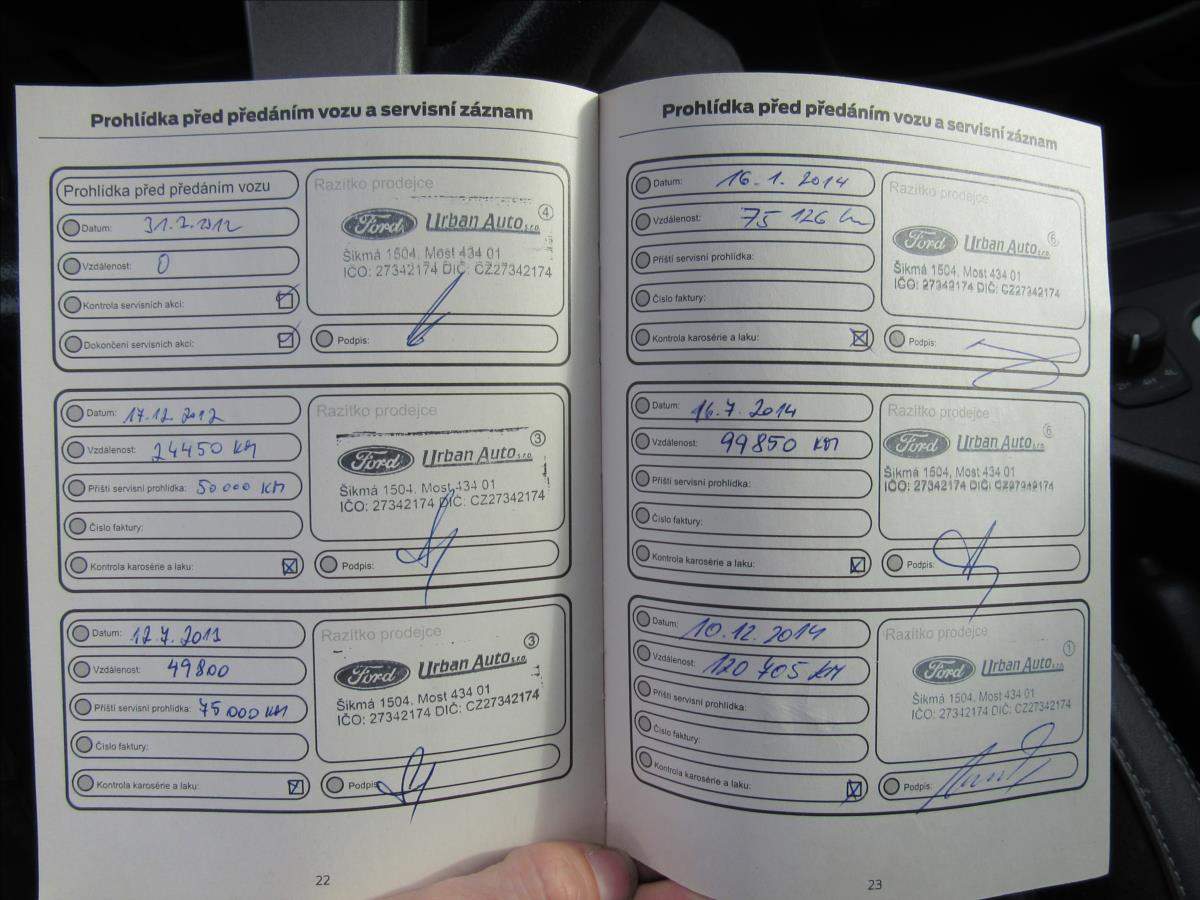 Prohlídka před předáním vozu a servisní záznam
Prohlídka před předáním vozu
Razítko prodejce
Datum: 31.7.2012
Ford Urban Auto s.r.o. 4
Vzdálenost: 0
Šikmá 1504, Most 434 01
IČO: 27342174 DIČ: CZ27342174
Kontrola servisních akcí:
Dokončení servisních akcí:
Podpis:
Datum: 17.12.2012
Razítko prodejce
Vzdálenost: 24450 KM
Ford Urban Auto s.r.o. 3
Příští servisní prohlídka: 50 000 KM
Šikmá 1504, Most 434 01
IČO: 27342174 DIČ: CZ27342174
Číslo faktury:
Kontrola karosérie a laku:
Podpis:
Datum: 12.7.2013
Razítko prodejce
Vzdálenost: 49800
Ford Urban Auto s.r.o. 3
Příští servisní prohlídka: 75 000 KM
Šikmá 1504, Most 434 01
IČO: 27342174 DIČ: CZ27342174
Číslo faktury:
Kontrola karosérie a laku:
Podpis:
22
Prohlídka před předáním vozu a servisní záznam
Datum: 16.1.2014
Razítko prodejce
Vzdálenost: 75 126 km
Ford Urban Auto s.r.o. 6
Příští servisní prohlídka:
Šikmá 1504, Most 434 01
IČO: 27342174 DIČ: CZ27342174
Číslo faktury:
Kontrola karosérie a laku:
Podpis:
Datum: 16.7.2014
Razítko prodejce
Vzdálenost: 99850 KM
Ford Urban Auto s.r.o. 6
Příští servisní prohlídka:
Šikmá 1504, Most 434 01
IČO: 27342174 DIČ: CZ27342174
Číslo faktury:
Kontrola karosérie a laku:
Podpis:
Datum: 10.12.2014
Razítko prodejce
Vzdálenost: 120 705 KM
Ford Urban Auto s.r.o. 1
Příští servisní prohlídka:
Šikmá 1504, Most 434 01
IČO: 27342174 DIČ: CZ27342174
Číslo faktury:
Kontrola karosérie a laku:
Podpis:
23